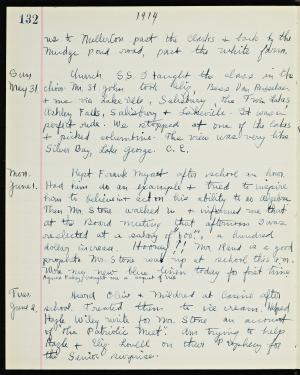 132 1914
us to Millerton past the Clarks & back by the
Mudge Pond road, past the white farm.
Sun. Church. S.S. I taught the class in the
May 31. choir. Mr. St. John took Elig, Bess Van
& me via Lakeville, Salisbury, the Twin Lakes
Ashley Falls, Salisbury & Lakeville. It was a
perfect ride. We stopped at one of the lakes
& picked columbine. The view was very like
Silver Bay, Lake George. C.E.
Mon. Kept Frank Myatt after school an hour.
June 1. Had him do an example & tried to inspire
him to believe in his ability to do Algebra.
Then Mr. Stone walked in & informed me that
at the Board meeting that afternoon I was
reelected at a salary of a hundred
dollar increase. Hooray!!! Mr. Reus is a good
prophet. Mr. Stone was up at school this p.m.
Wore my new blue linen today for first time.
Tues. Heard Olive & Mildred at Cosine after
June 2. school. Treated them to ice cream. Helped
Hazle Wiley write for Mr. Stone an account
of "The Patriotic Meet". Am trying to help
Hazle & Elig. Lovell on their Prophecy for
the Senior surprise.